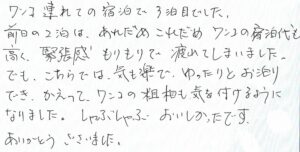 ワンコ連れての宿泊で3泊目でした。
前日の2泊は、あれだめこれだめ ワンコの宿泊代も
高く、緊張感もりもりで 渡めてしまいました。
でも、こちらでは、気も楽で、ゆったりとお泊り
でき、かえって、ワンコの粗相も気を付けるように
なりました。しゃぶしゃぶ おいしかったです。
ありがとう ございました。